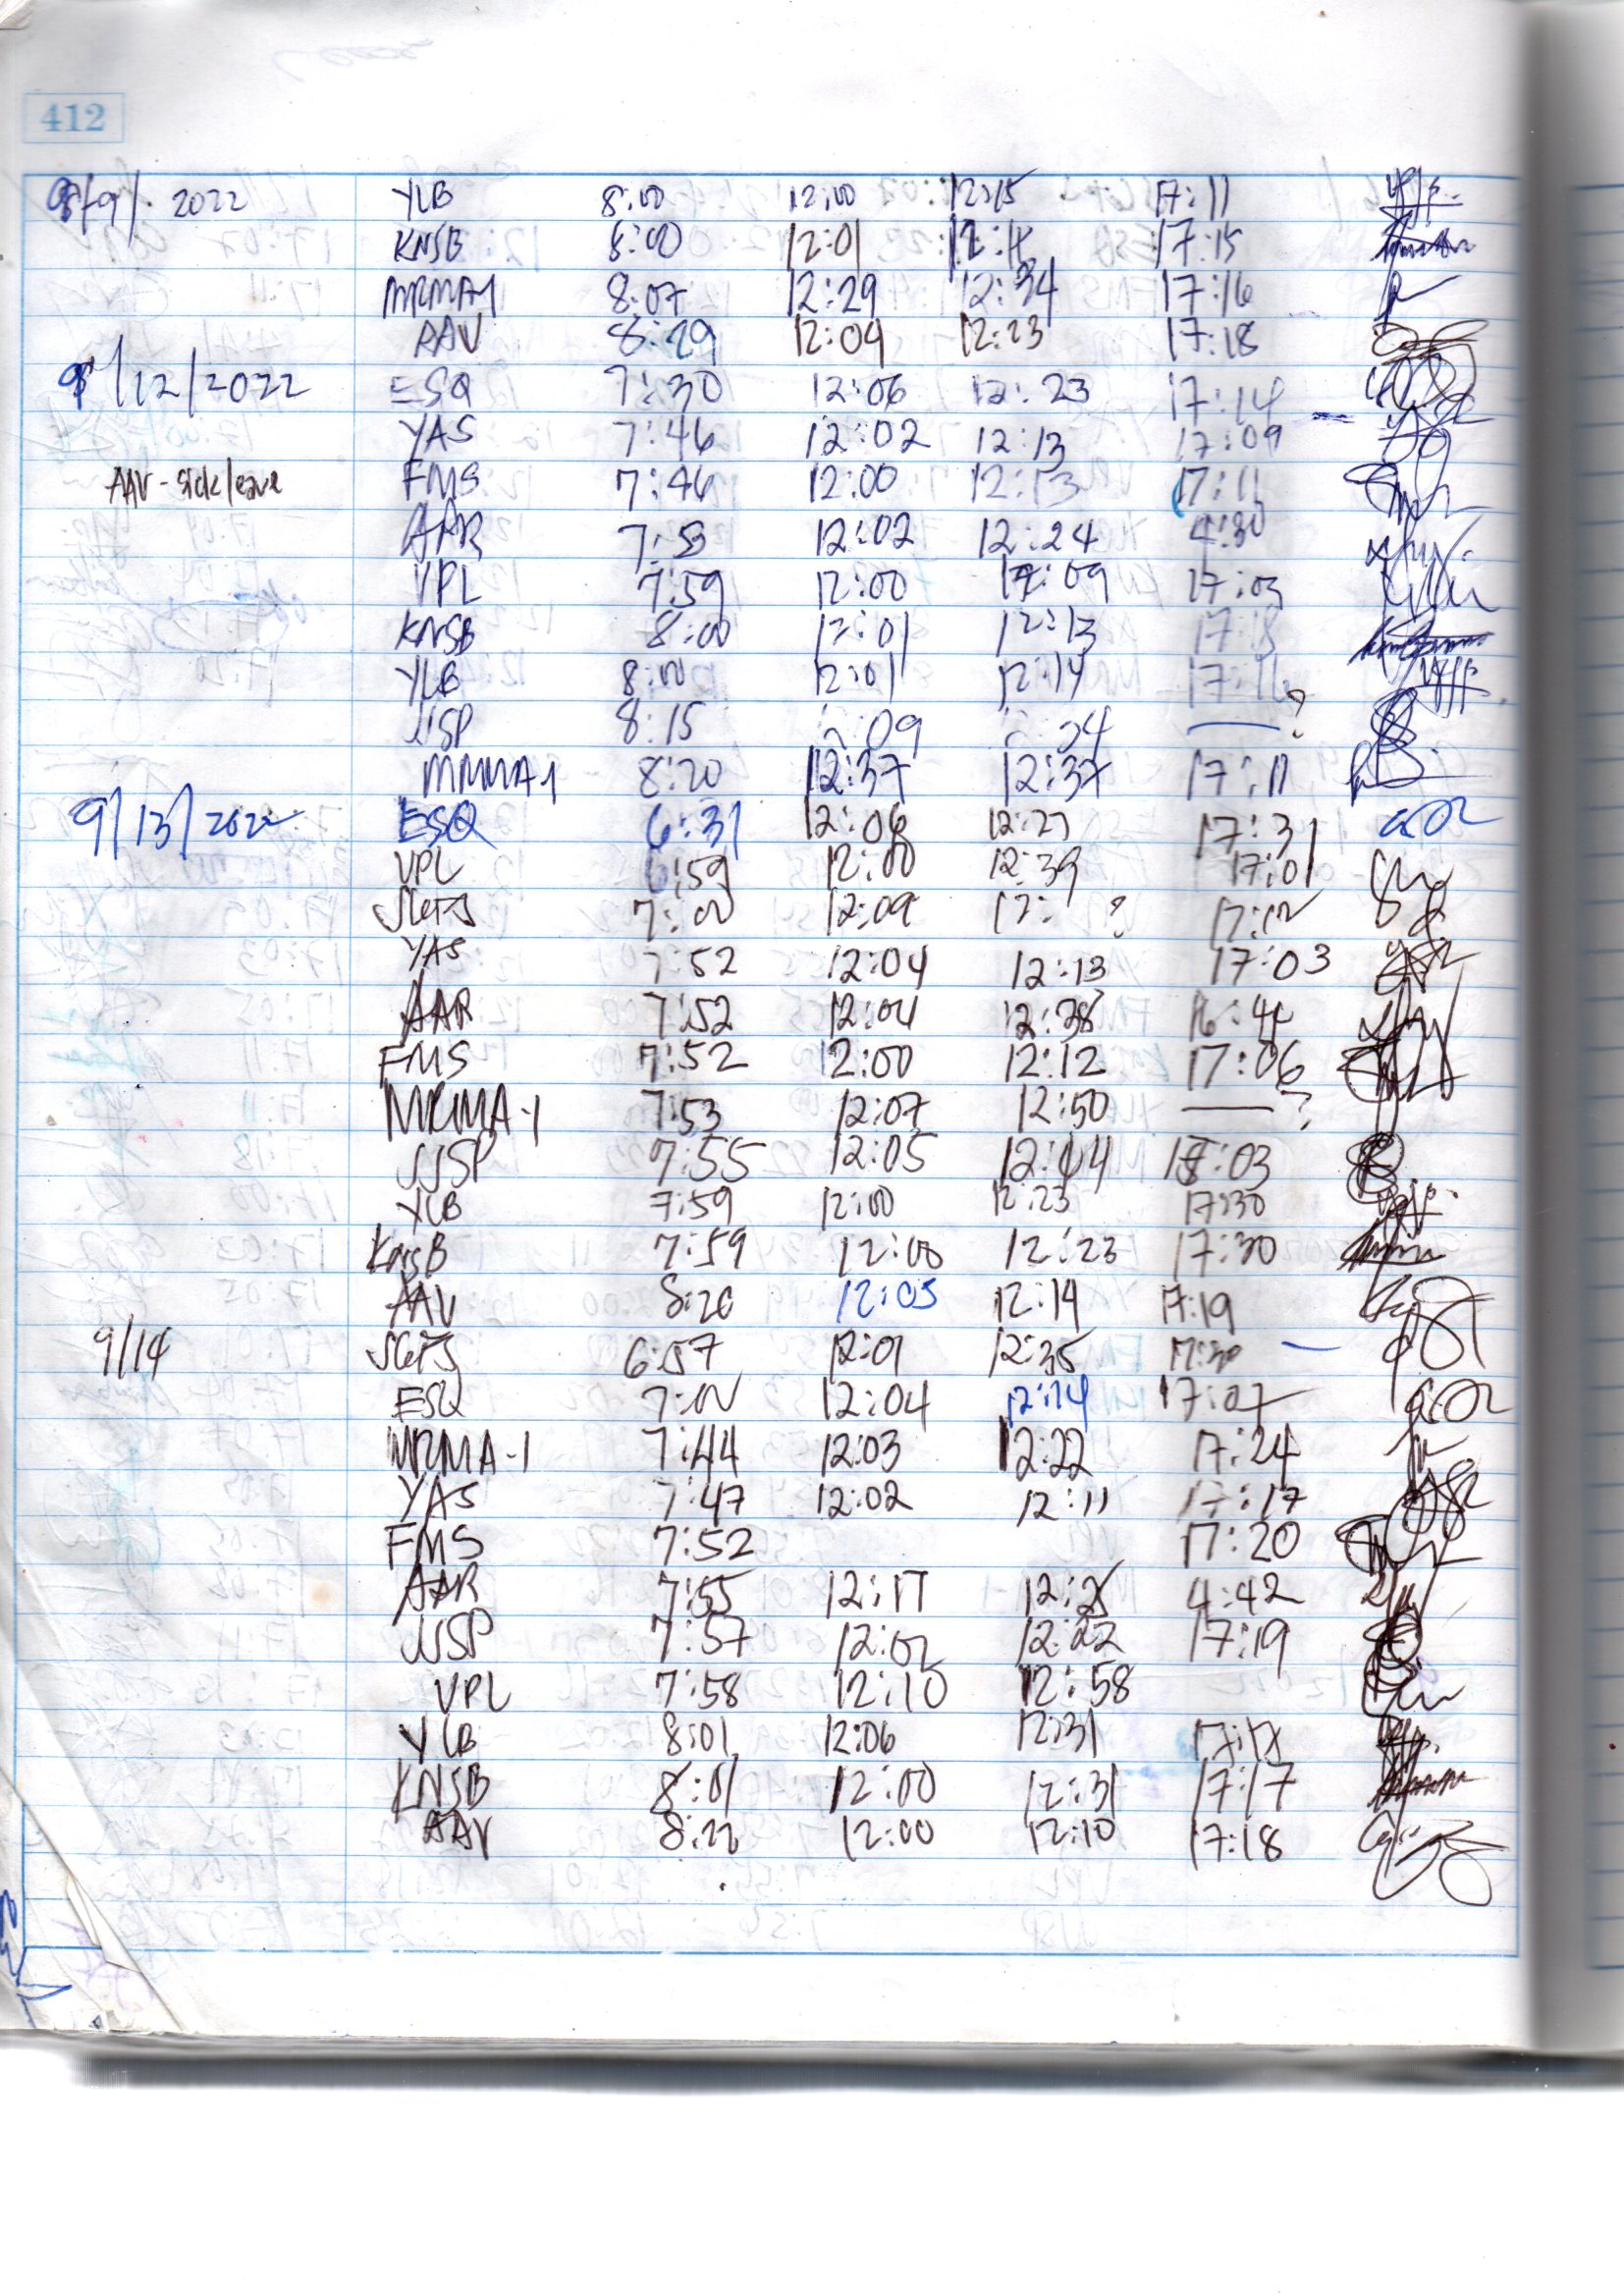 412
9/9/. 2022 YLB 8:00 12:00 12:15 17:11
KNSB 8:00 12:01 12:14 17:15
MRMA-1 8:07 12:29 12:34 17:16
AAV 8:29 12:04 12:23 17:18
9/12/2022 ESQ 7:30 12:06 12:23 17:14
YAS 7:46 12:02 12:13 17:09
AAV - sick leave FMS 7:46 12:00 12:13 17:11
AAR 7:53 12:02 12:24 4:30
VPL 7:59 12:00 12:09 17:03
KNSB 8:00 12:01 12:13 17:18
YLB 8:00 12:01 12:14 17:16
JJSP 8:15 :09 :04 — ?
MRMA-1 8:20 12:37 12:37 17:11
9/13/2022 ESQ 6:31 12:06 12:27 17:31
VPL 6:59 12:00 12:39 17:01
7:00 12:09 12: ?
YAS 7:52 12:04 12:13 17:03
AAR 7:52 12:04 12:38 16:44
FMS 7:52 12:00 12:12 17:06
MRMA-1 7:53 12:07 12:50 — ?
JJSP 7:55 12:05 12:44 18:03
YLB 7:59 12:00 12:23 17:30
KNSB 7:59 12:00 12:23 17:30
AAV 8:20 12:05 12:14 17:19
9/14 6:57 12:01 12:35 17:30
ESQ 7:00 12:04 12:14 17:07
MRMA-1 7:44 12:03 12:22 17:24
YAS 7:47 12:02 12:11 17:17
FMS 7:52 17:20
AAR 7:55 12:17 12:25 4:42
JJSP 7:57 12:02 12:22 17:19
VPL 7:58 12:10 12:58
YLB 8:01 12:06 12:31 17:17
KNSB 8:01 12:00 12:31 17:17
AAV 8:22 12:00 12:10 17:18